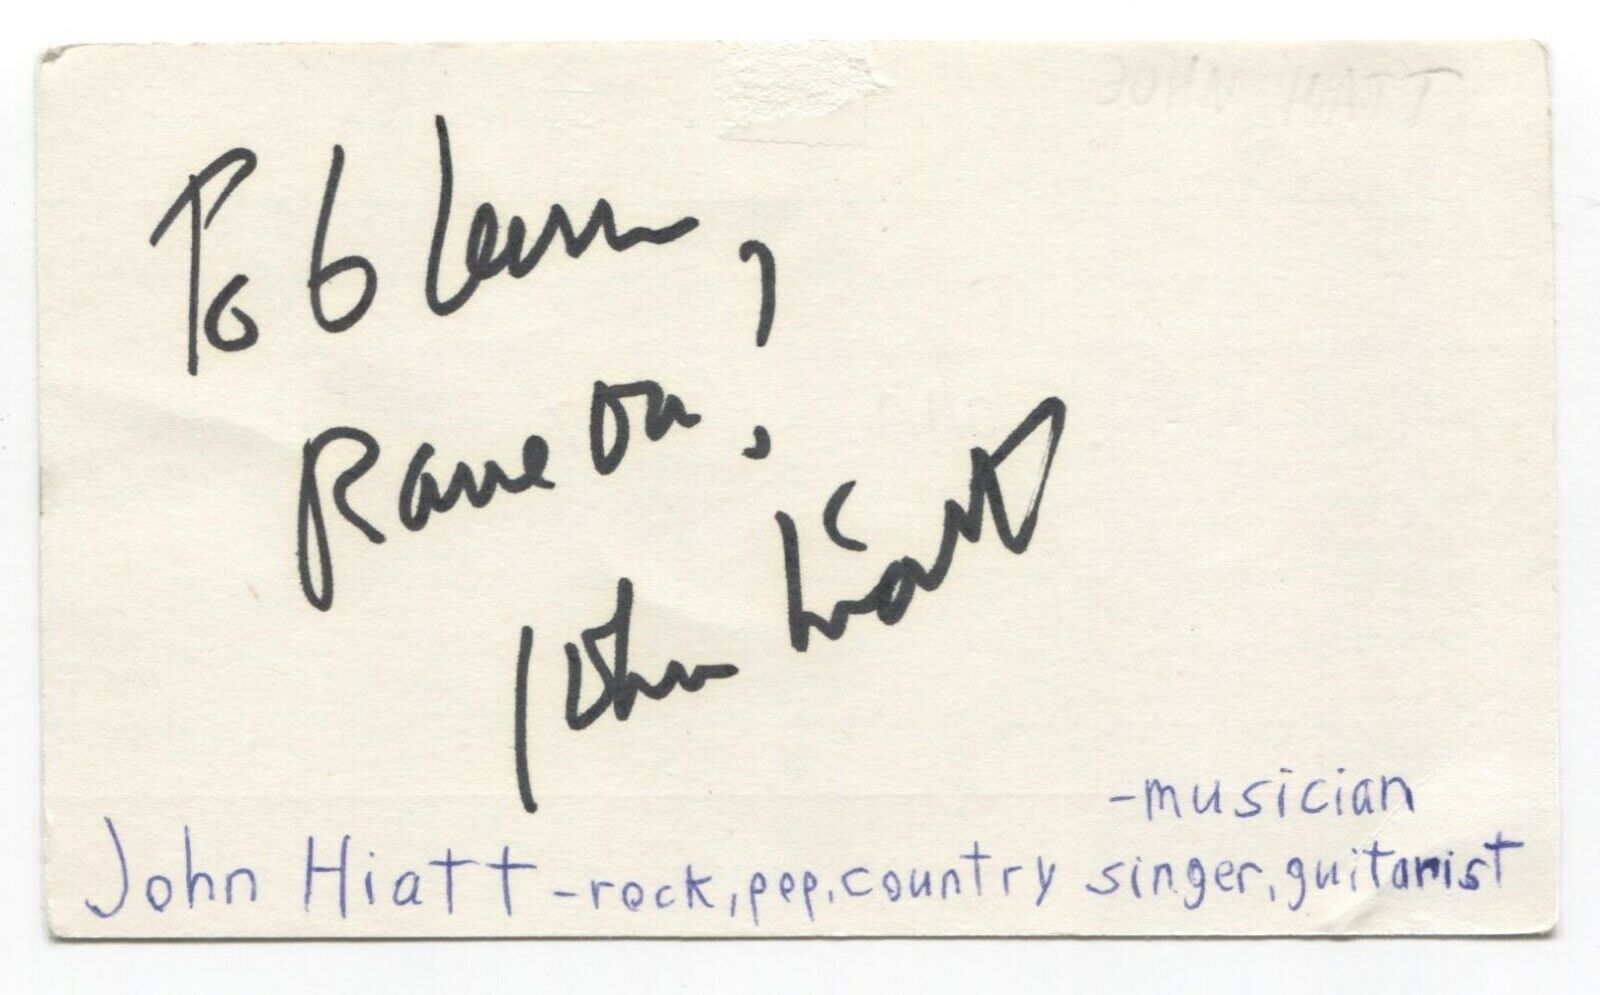 To Glenn,
Rave On!
John Hiatt
-musician
John Hiatt -rock, pop, country singer, guitarist